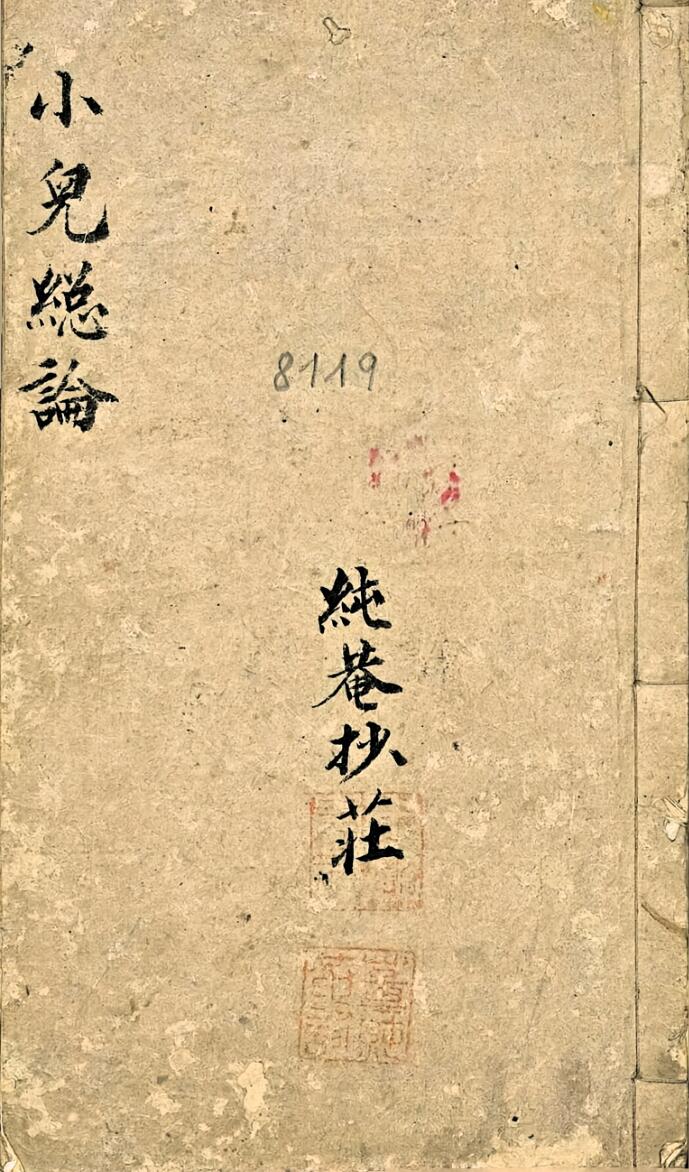 小兒緫論
8119
純菴抄荘